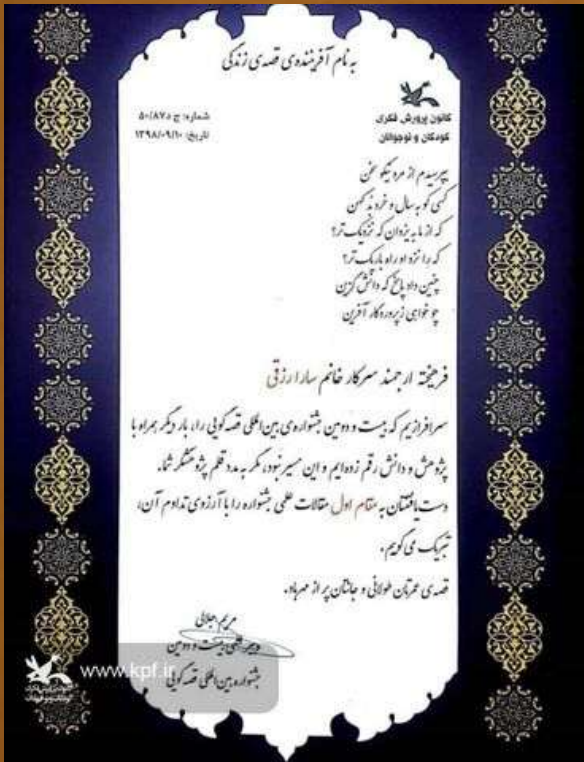 به نام آفریننده‌ی قصه‌ی زندگی
کانون پرورش فکری
کودکان و نوجوانان
شماره: ج د/۵۰/۸۷
تاریخ: ۱۳۹۸/۰۹/۱۰
بپرسیدم از مرد نیکو سخن
کسی کو به سال و خرد بد کهن
که از ما به یزدان که نزدیک‌تر؟
که را نزد او راه باریک‌تر؟
چنین داد پاسخ که دانش گزین
چو خواهی ز پروردگار آفرین
فرهیخته ارجمند سرکار خانم سارا رزقی
سرافرازیم که بیست و دومین جشنواره‌ی بین‌المللی قصه‌گویی را، بار دیگر همراه با
پژوهش و دانش رقم زده‌ایم و این مسیر نبود، مگر به مدد قلم پژوهشگر شما.
دست‌یافتنتان به مقام اول مقالات علمی جشنواره را با آرزوی تداوم آن،
تبریک می‌گویم.
قصه‌ی عمرتان طولانی و جانتان پر از مهر باد.
مریم جلالی
دبیر علمی بیست و دومین
جشنواره بین‌المللی قصه‌گویی
www.kpf.ir